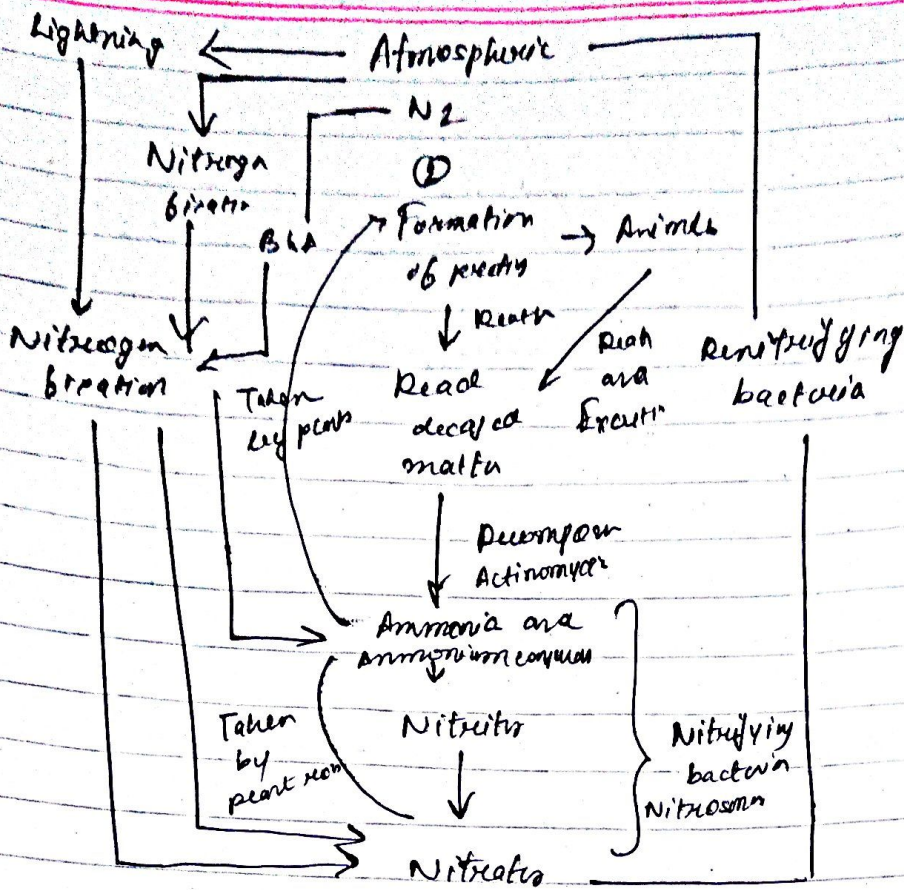 Lightning
Atmospheric
N2
①
Nitrogn
fixatn
BGA
Formation
of protin
Animls
Death
Death
and
Excreti
Denitrifying
bacteria
Nitroogen
fixation
Taken
by plants
Dead
decayed
matter
Decompose
Actinomyces
Ammonia and
Ammonium compounds
Taken
by
plant root
Nitrites
Nitrifying
bacteria
Nitrosoma
Nitrates